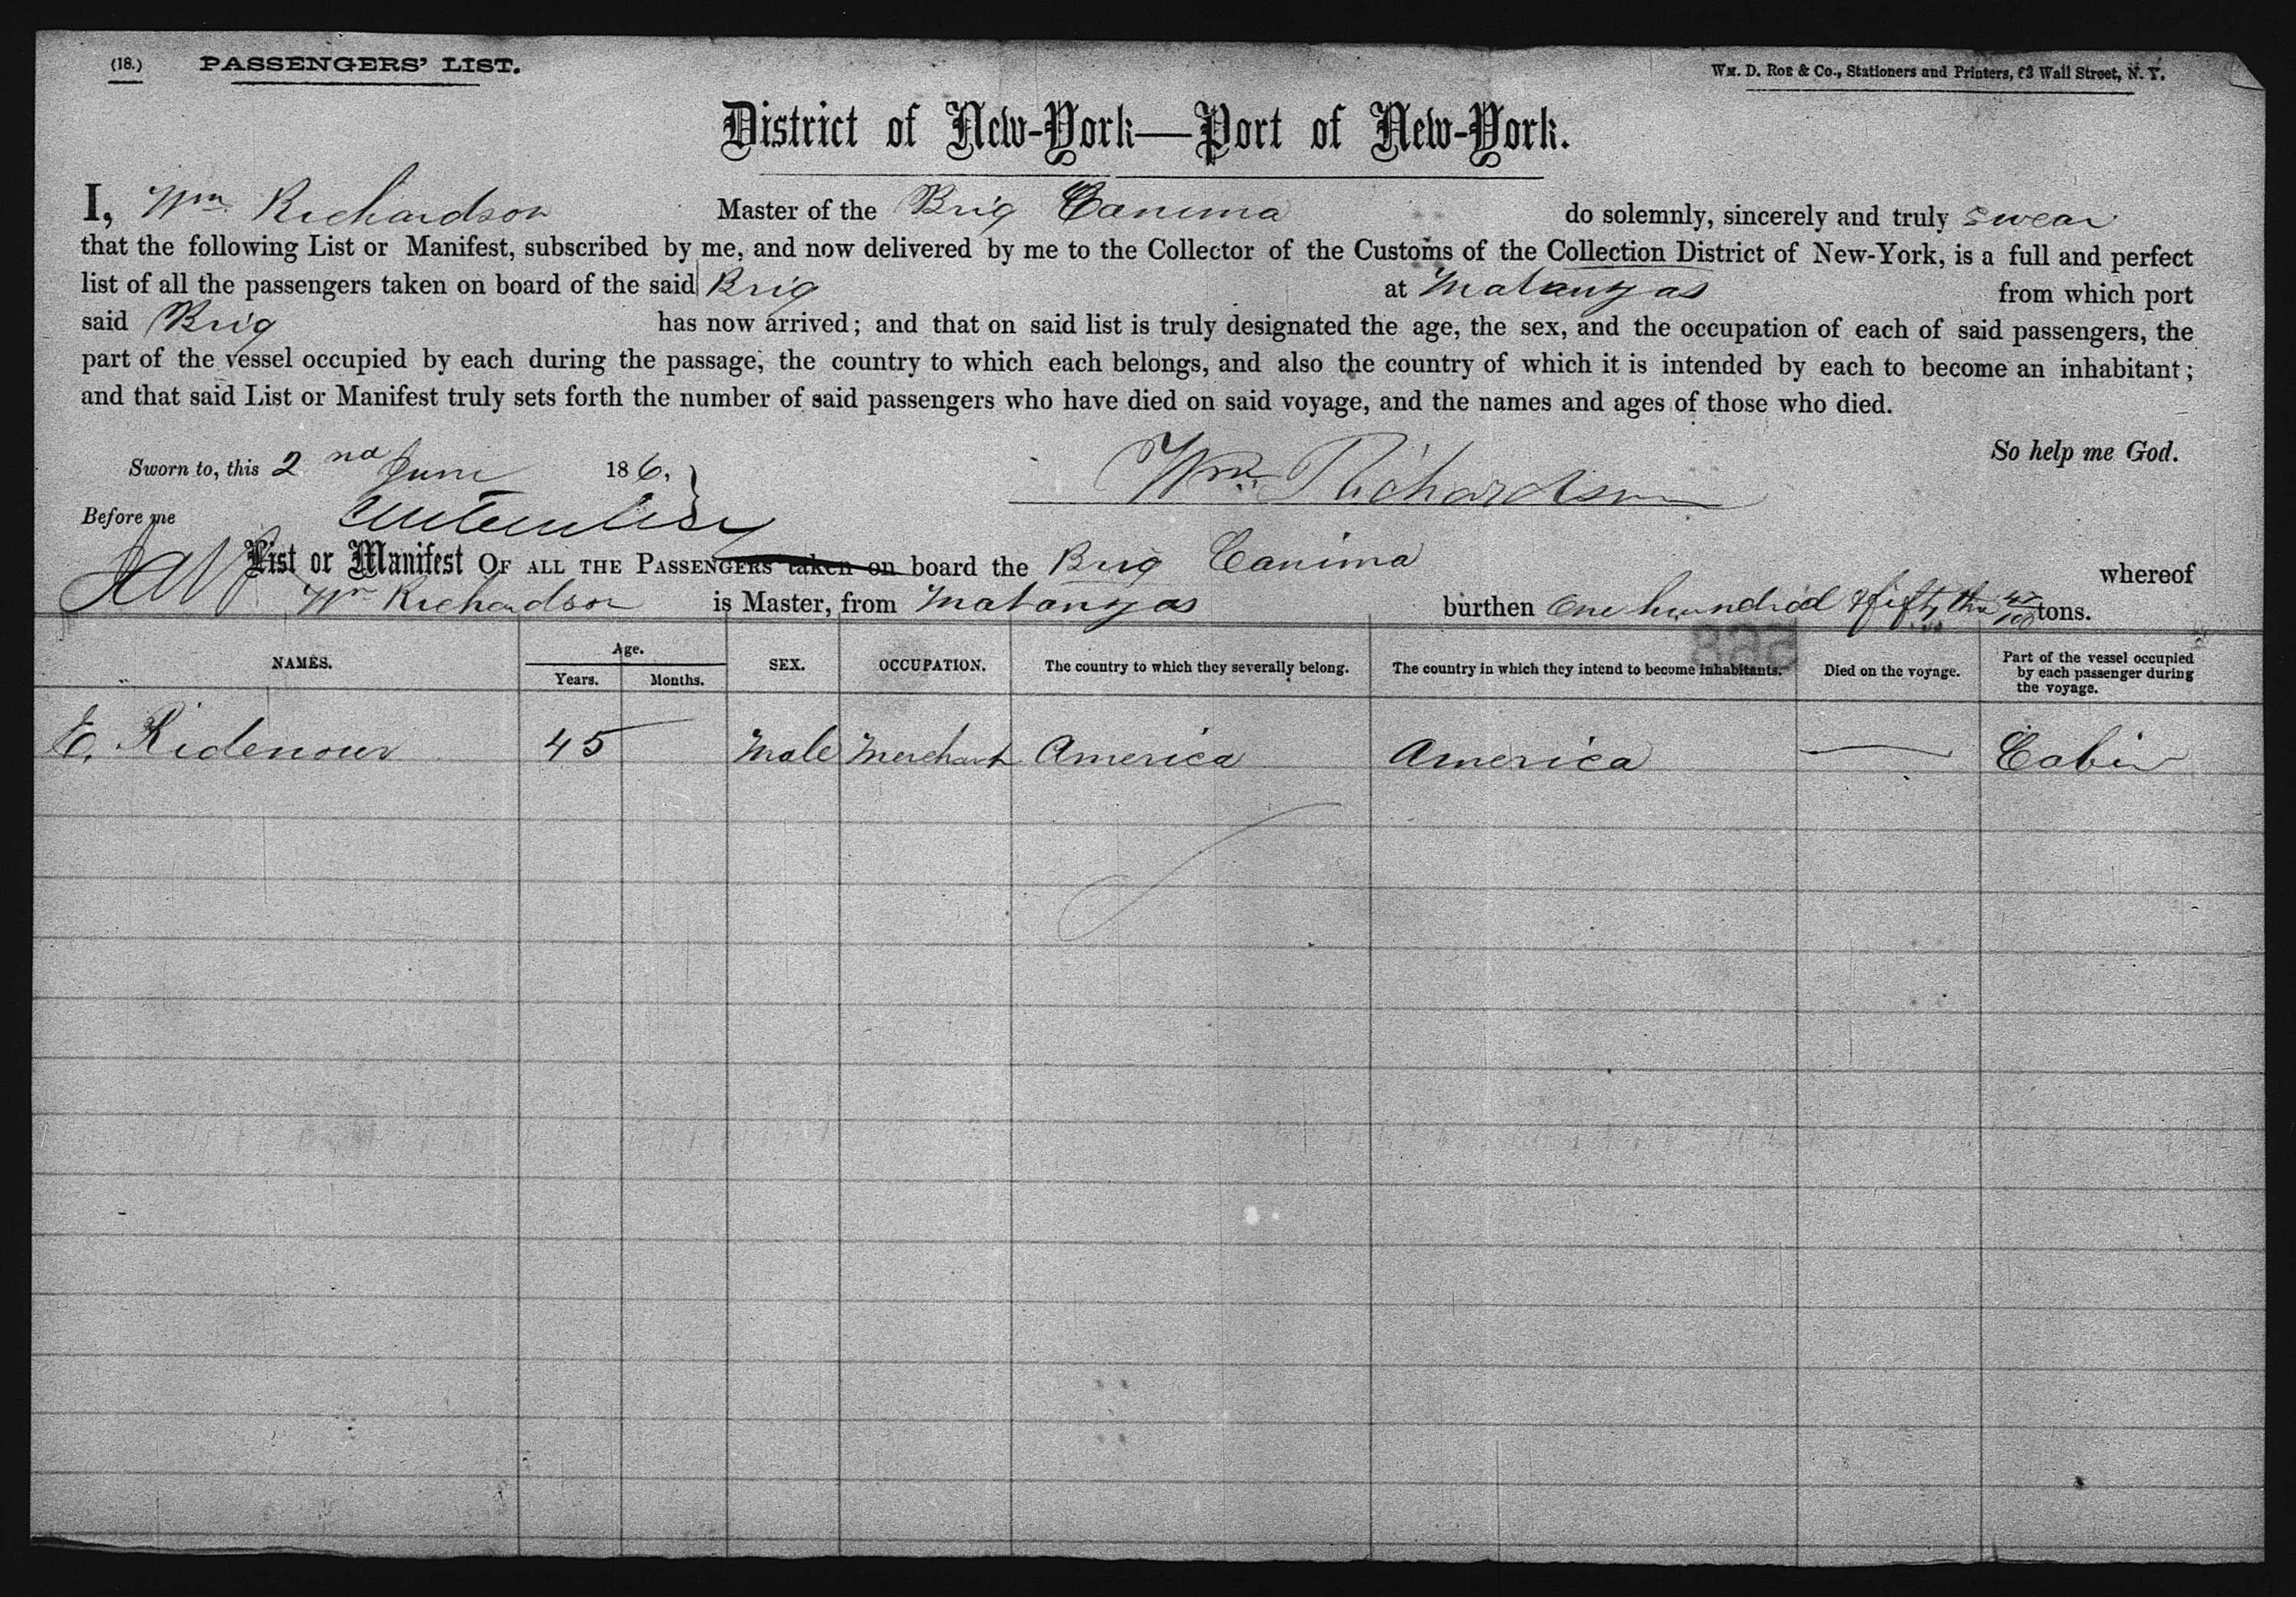 (18.) PASSENGERS' LIST. Wm. D. Roe & Co., Stationers and Printers, 63 Wall Street, N. Y.
District of New-York—Port of New-York.
I, Wm Richardson Master of the Brig Canima do solemnly, sincerely and truly swear
that the following List or Manifest, subscribed by me, and now delivered by me to the Collector of the Customs of the Collection District of New-York, is a full and perfect
list of all the passengers taken on board of the said Brig at Matanzas from which port
said Brig has now arrived; and that on said list is truly designated the age, the sex, and the occupation of each of said passengers, the
part of the vessel occupied by each during the passage, the country to which each belongs, and also the country of which it is intended by each to become an inhabitant;
and that said List or Manifest truly sets forth the number of said passengers who have died on said voyage, and the names and ages of those who died.
So help me God.
Sworn to, this 2nd June 186.
Wm. Richardson
Before me
List or Manifest OF ALL THE PASSENGERS taken on board the Brig Canima whereof
Wm Richardson is Master, from Matanzas burthen One hundred & fifty 47/100 tons.
NAMES. Age. Years. Months. SEX. OCCUPATION. The country to which they severally belong. The country in which they intend to become inhabitants. Died on the voyage. Part of the vessel occupied by each passenger during the voyage.
E. Ridenour 45 Male Merchant America America — Cabin